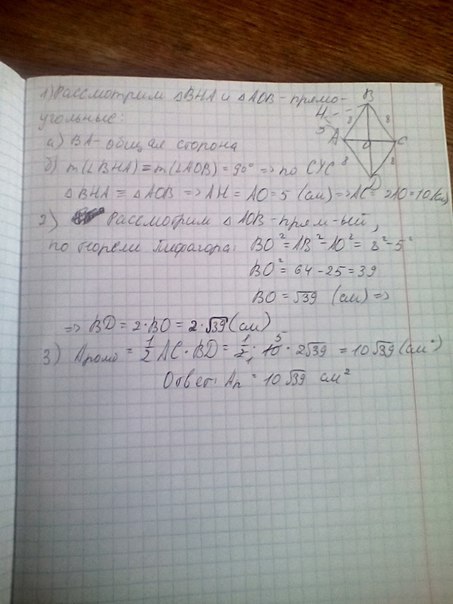 1) Рассмотрим △BHA и △AOB - прямо-
угольные:
а) BA - общая сторона
б) m(∠BHA) = m(∠AOB) = 90° => по СУС
△BHA ≡ △AOB => AH = AO = 5 (см) => AC = 2AO = 10 (см)
2) Рассмотрим △AOB - прям-ый,
по теореме Пифагора: BO² = AB² - AO² = 8² - 5²
BO² = 64 - 25 = 39
BO = √39 (см) =>
=> BD = 2·BO = 2·√39 (см)
3) Aромб = 1/2 AC · BD = 1/2 · 10 · 2√39 = 10√39 (см²)
5
1
Ответ: Aп = 10√39 см²
B
H
5
8
8
A
O
C
8
8
D